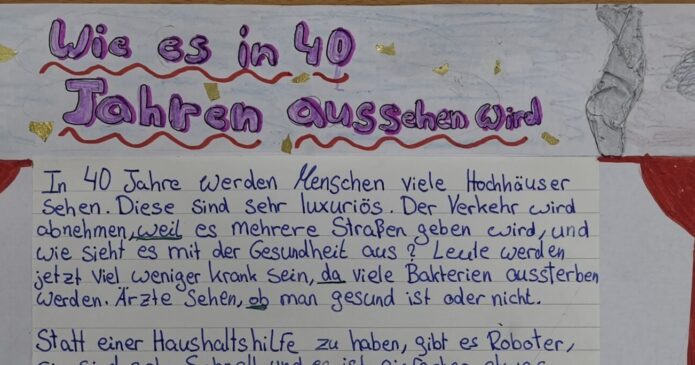 Wie es in 40
Jahren aussehen wird
In 40 Jahre werden Menschen viele Hochhäuser
sehen. Diese sind sehr luxuriös. Der Verkehr wird
abnehmen, weil es mehrere Straßen geben wird, und
wie sieht es mit der Gesundheit aus? Leute werden
jetzt viel weniger krank sein, da viele Bakterien aussterben
werden. Ärzte sehen, ob man gesund ist oder nicht.
Statt einer Haushaltshilfe zu haben, gibt es Roboter,